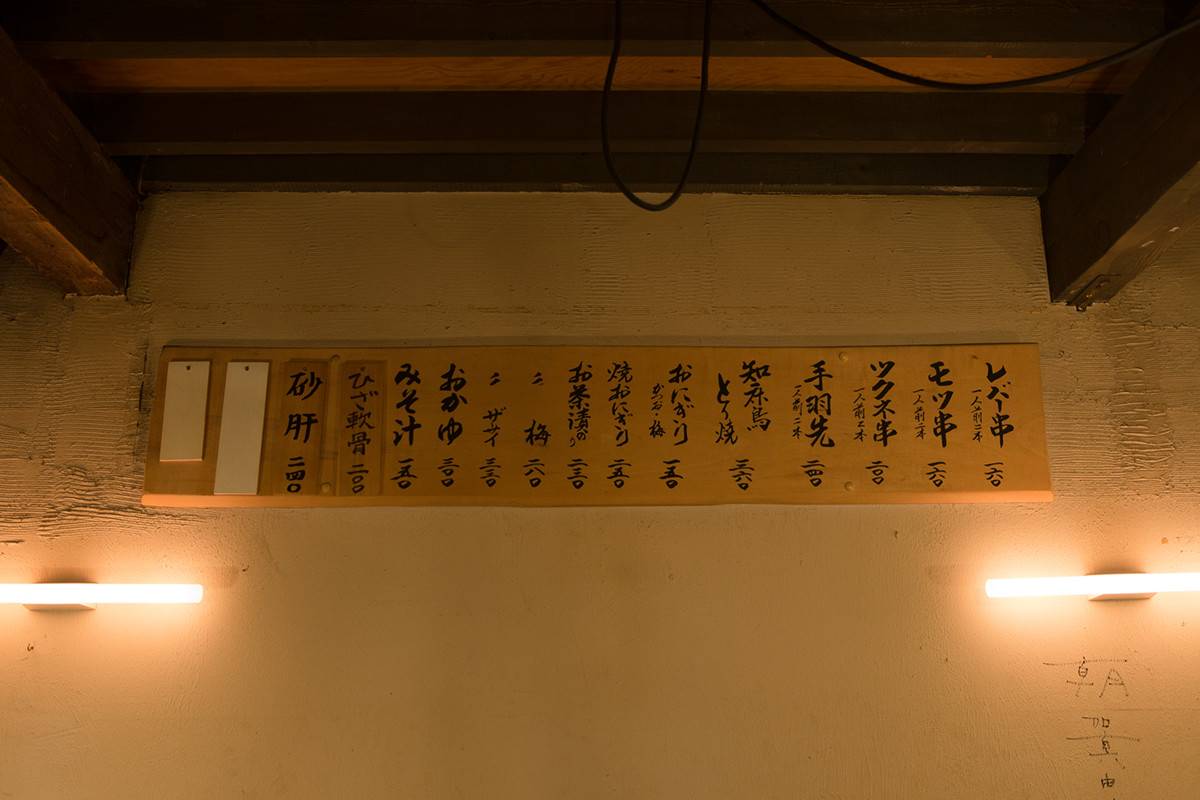 レバー串
一人前二本
一六〇
モツ串
一人前二本
一六〇
ツクネ串
一人前二本
二〇〇
手羽先
一人前二本
二四〇
知床鳥
とり焼
二六〇
おにぎり
かつお・梅
一五〇
焼おにぎり
二五〇
お茶漬のり
二三〇
〃 梅
二八〇
〃 ザーサイ
三三〇
おかゆ
三〇〇
みそ汁
一五〇
ひざ軟骨
二〇〇
砂肝
二四〇
朝
加
由